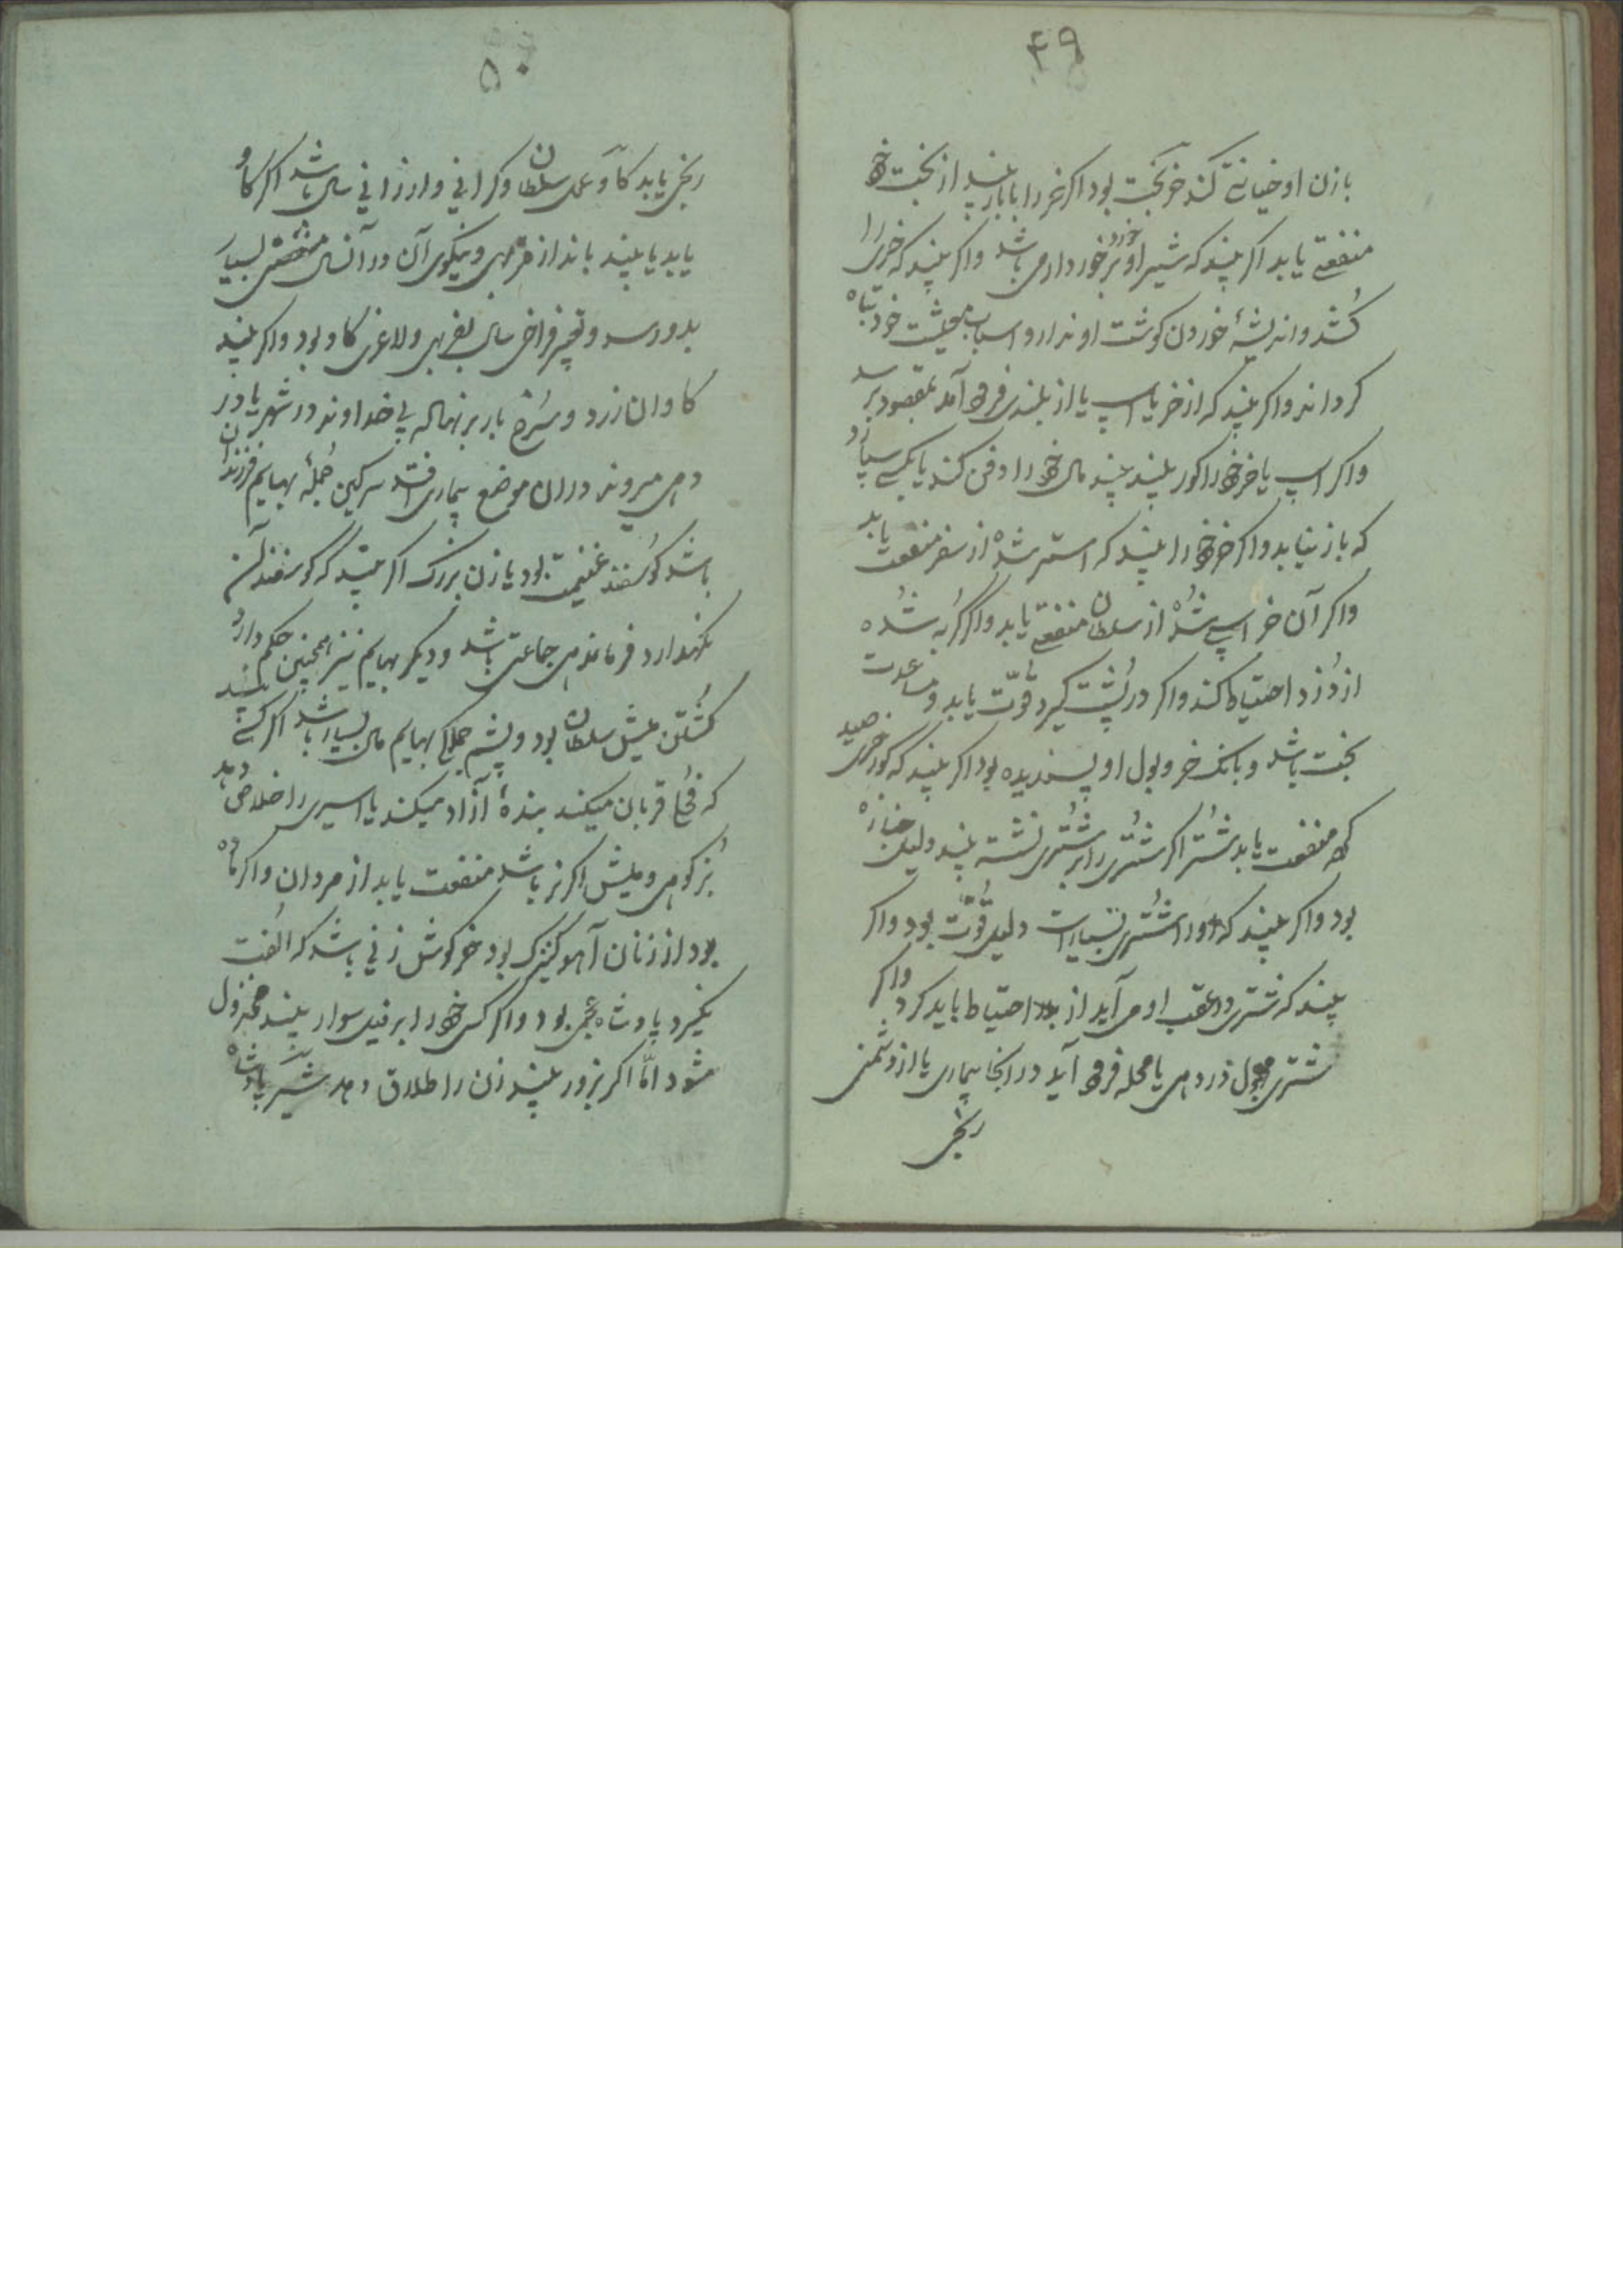 ۴۹
بازن او خیانتے کند خر بخت بود اکر خر را با بار بیند از بخت خود
منفعتے یابد اکر بیند که شیر او خورد برخوردارمی باشد واکر بیند که خری را
کشد واندیشهٔ خوردن کوشت او ندارد اسباب معیشت خود تباه
کرداند واکر بیند که از خر یا اسپ یا از بلندی فرود آمد بمقصود برسد
واکر اسپ یا خر خود را کور بیند مال خود را دفن کند یا بکسے سپارد
که باز نیابد واکر خر خود را بیند که استر شده از سفر منفعت یابد
واکر آن خر اسپے شده از سلطان منفعتے یابد واکر کربه شده
از دزد احتیاط کند واکر در پشت کیرد قوّت یابد و مساعدت
بخت باشد و بانک خر وبول او پسندیده بود اکر بیند که کور خری صید
کرد منفعت یابد شتر اکر شتری را بر شتری نشسته بیند دلیل جنازه
بود واکر بیند که اورا شتری بسیارست دلیل قوّت بود واکر
بیند که شتری در عقب او می آید از بلا احتیاط باید کرد واکر
شتری مجهول در دهی یا محله فرود آید در انجا بیماری یا از دشمنی
رنجی
۵۰
رنجی یابد کاو عمل سلطان وکرانی وارزانی سال باشد اکر کاو
یابد یا بیند باندازهٔ فربهی ونیکوی آن در آنسال منفعتی بسیار
بدو رسد وتعبیر فراخی سال بفربهی ولاغری کاو بود واکر بیند
کاوان زرد وسرخ بار بر نهاله بی خداوند در شهر یا در
دهی میروند دران موضع بیماری افتد سرکین جملهٔ بهایم فرزندان
باشد کوسفند غنیمت بود یا زن بزرک اکر بیند که کوسفندان
نکهدارد فرماندهی جماعتی باشد ودیکر بهایم نیز همچنین حکم دارد
کشتن میش سلطان بود وپشم جملهٔ بهایم مال بسیار باشد اکر کسے بیند
که قچی قربان میکند بندهٔ آزاد میکند یا اسیری را خلاص دهد
بز کوهی ومیش اکر نر باشد منفعت یابد از مردان واکر ماده
بود از زنان آهو کنیزک بود خرکوش زنی باشد که الفت
نکیرد پادشاه عجمی بود واکر کسی خود را بر فیل سوار بیند معزول
شود امّا اکر بروز بیند زن را طلاق دهد شیر پادشاه